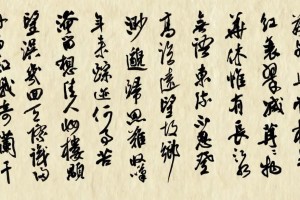 紅衰翠減苒苒物
華休惟有長江水
無語東流不忍登
高臨遠望故鄉
渺邈歸思難收嘆
年來蹤迹何事苦
淹留想佳人妝樓顒
望誤幾回天際識歸